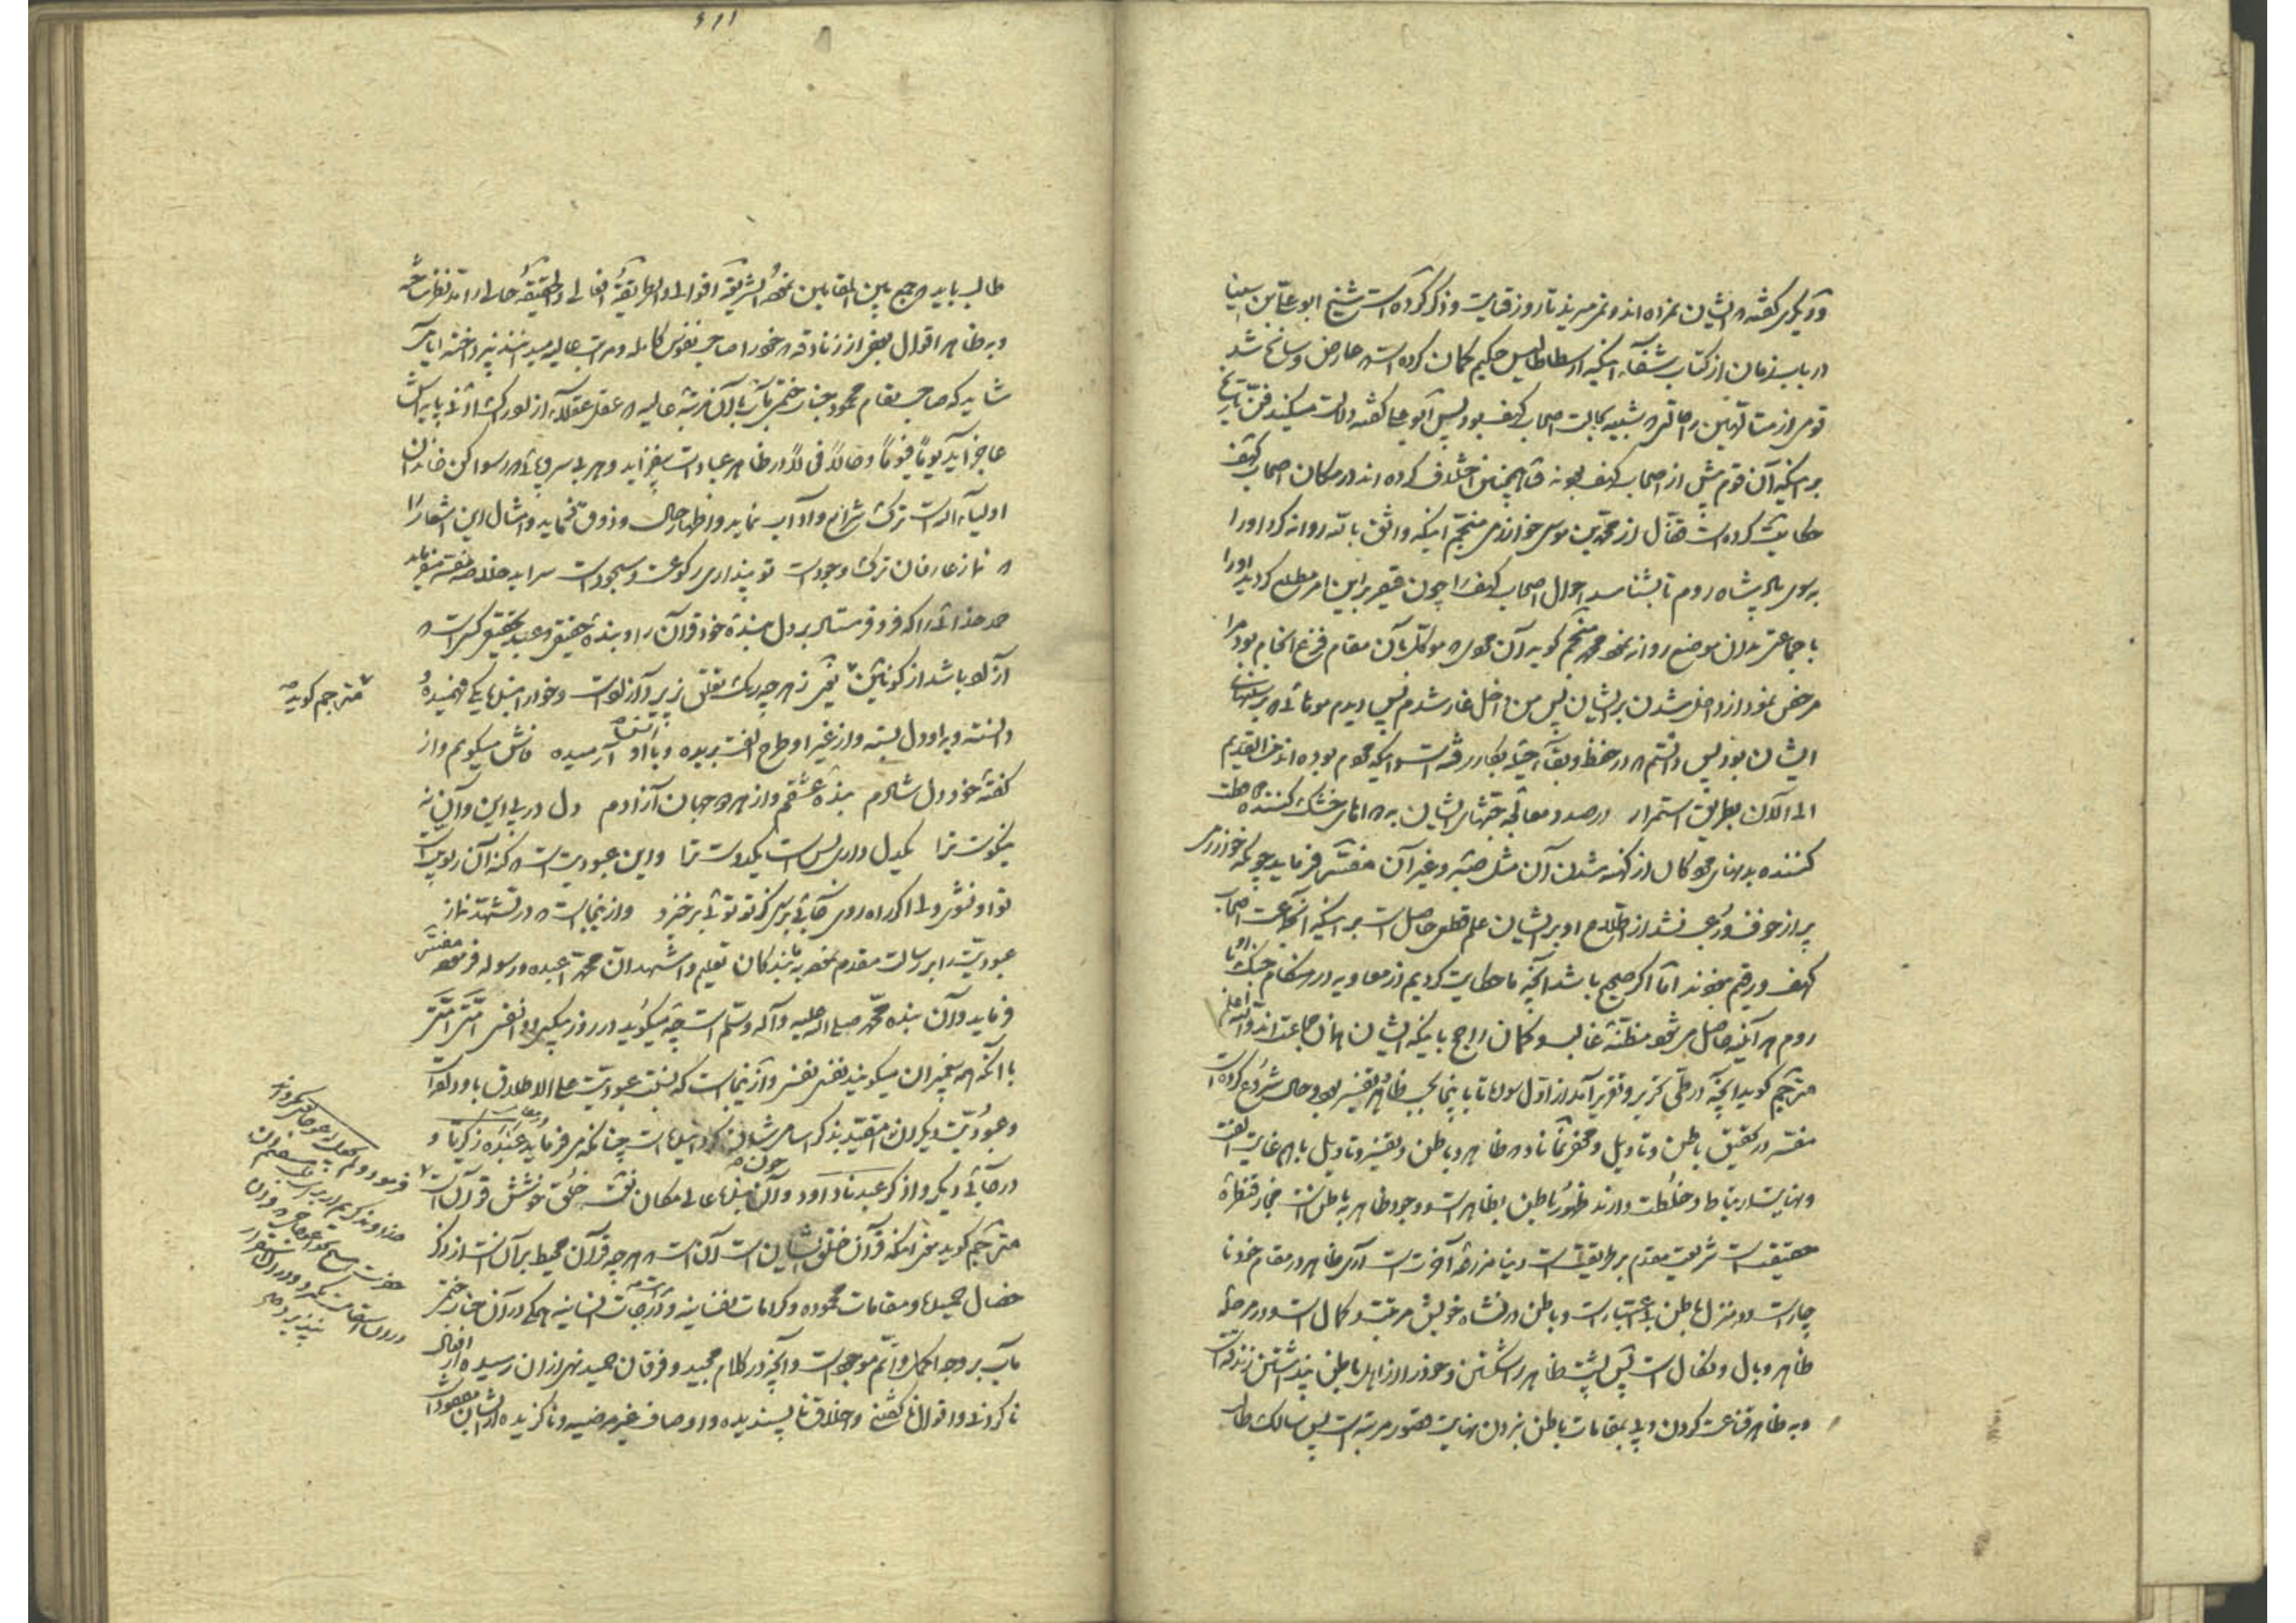 و دیگری گفته که ایشان نمرده اند و نمی میرند تا روز قیامت و ذکر کرده است شیخ ابو علی بن سینا
در باب زمان از کتاب شفاء اینکه ارسطاطالیس حکیم گمان کرده است که عارض و سانح شد
قومی از متألهین را حالتی که شبیه بحالت اصحاب کهف بود پس ابو علی گفته دلالت میکند فن تاریخ
بر اینکه آن قوم پیش از اصحاب کهف بوده اند و همچنین اختلاف کرده اند در مکان اصحاب کهف
حکایت کرده است قفال از محمد بن موسی خوارزمی منجم اینکه واثق بالله روانه کرد او را
بسوی پادشاه روم تا بشناسد احوال اصحاب کهف را چون قیصر بر این امر مطلع گردید او را
با جماعتی بدان موضع روانه نمود محمد منجم گوید آن مردی که موکل بآن مقام فزع انجام بود مرا
مرخص نمود از داخل شدن بر ایشان پس من داخل غار شدم پس دیدم موهائی که بر سینهای
ایشان بود پس دانستم که در حفظ و بقاء حیله بکار رفته است و اینکه مردم بوده اند من القدیم
الی الآن بطریق استمرار در صدد معالجه جثهای ایشان به دواهای خشک کننده که حفظ
کننده بدنهای مردگان از کهنه شدن آن مثل صبر و غیر آن مفسر فرماید چونکه خوارزمی
پر از خوف و رعب نشد از اطلاع او بر ایشان علم قطعی حاصل است بر اینکه آنجماعت اصحاب
کهف و رقیم نبودند اما اگر صحیح باشد آنچه ما حکایت کردیم از معاویه در هنگام جنگ او با
روم هر آینه حاصل می شود مظنه غالب و گمان راجح باینکه ایشان همان جماعت اند و الله اعلم
مترجم گوید آنچه در طی تحریر و تقریر آمد از اول سوره تا باینجا بحسب ظاهر تفسیر بود و حال شروع کرده است
مفسر در تحقیق باطن و تاویل و مخفی نماناد که ظاهر و باطن و تفسیر و تاویل با هم غایت الفت
و نهایت ارتباط و خلطت دارند ظهور باطن بظاهر است و وجود ظاهر به باطن است مجاز قنطره
حقیقت است شریعت مقدم بر طریقت است دنیا مزرعه آخرت است آری ظاهر در مقام خود با
چار است و در منزل باطن بی اعتبار است و باطن در نشاه خویش مرتبت و کمال است و در مرحله
ظاهر وبال و نکال است پس پشت ظاهر را شکستن و خود را از اهل باطن پنداشتن زندقه است
و به ظاهر قناعت کردن و پی بمقامات باطن نبردن نهایت قصور مرتبه است پس سالک طالب
طالب باید که جمع بین المقامین نموده الشریعة اقوالی و الطریقة افعالی و الحقیقة حالی را مد نظر ساخته
و به ظاهر اقوال بعضی از زنادقه که خود را صاحب نفوس کامله و مراتب عالیه میدانند نپرداخته ایامی
شاید که صاحب مقام محمود جناب ختمی مآب با آن مرتبه عالیه که عقل عقلاء از تصور ادنی پایه اش
عاجز آید یوما فیوما و حالا فحالا در ظاهر عبادات بیفزاید و هر بی سر و پائی که رسوا کن خاندان
اولیاء الله است ترک شرایع و آداب نماید و اظهار حال و ذوق فرماید و امثال این اشعار را
که نماز عارفان ترک وجود است تو پنداری رکوع است و سجود است سراید خلاصه مفسر میفرماید
حمد خدائی را که فرو فرستاد بر دل بنده خود قرآن را و بنده حقیقی و عبد تحقیقی کسی است که
آزاد باشد از کونین نی ز هر چه رنگ تعلق پذیرد آزاد است و خود را بنده یکی فهمیده و
دانسته و بر او دل بسته و از غیر او طرح الفت بریده و با او آرمیده فاش میگویم و از
گفته خود دلشادم بنده عشقم و از هر دو جهان آزادم دل در پی این و آن نه
نیکوست ترا یکدل داری بس است یکدوست ترا و این عبودیت است که کنه آن ربوبیت است
تو او نشوی ولی اگر راه روی جائی برسی کز تو توئی برخیزد و از اینجاست که در تشهد نماز
عبودیت را بر رسالت مقدم نموده به بندگان تعلیم و اشهد ان محمدا عبده و رسوله فرموده مفسر
فرماید و آن بنده محمد صلی الله علیه و آله و سلم است چه میگوید در روزی که پیغمبران وا نفسی امتی امتی
با آنکه همه پیغمبران میگویند نفسی نفسی و از اینجاست که نسبت عبودیت علی الاطلاق باو داده است
و عبودیت دیگران را مقید بذکر اسامی شان کرده است چنانکه می فرماید عبده زکریا و
در جائی دیگر و اذکر عبدنا داود و آن بنده عالی مکان چون نقش خلق خوشش قرآن است
مترجم گوید معنی اینکه قرآن خلق ایشان است آن است که هر چه قرآن محیط بر آن است از ذکر
خصال حمیده و مقامات محموده و کرامات نفسانیه و درجات انسانیه همگی در آن جناب ختمی
مآب بر وجه اکمل و اتم موجود است و آنچه در کلام مجید و فرقان حمید نهی از آن رسیده از افعال
ناکردنی و اقوال ناگفتنی و اخلاق ناپسندیده و اوصاف غیر مرضیه و ناگزیده از ایشان مفقود است
مترجم گوید